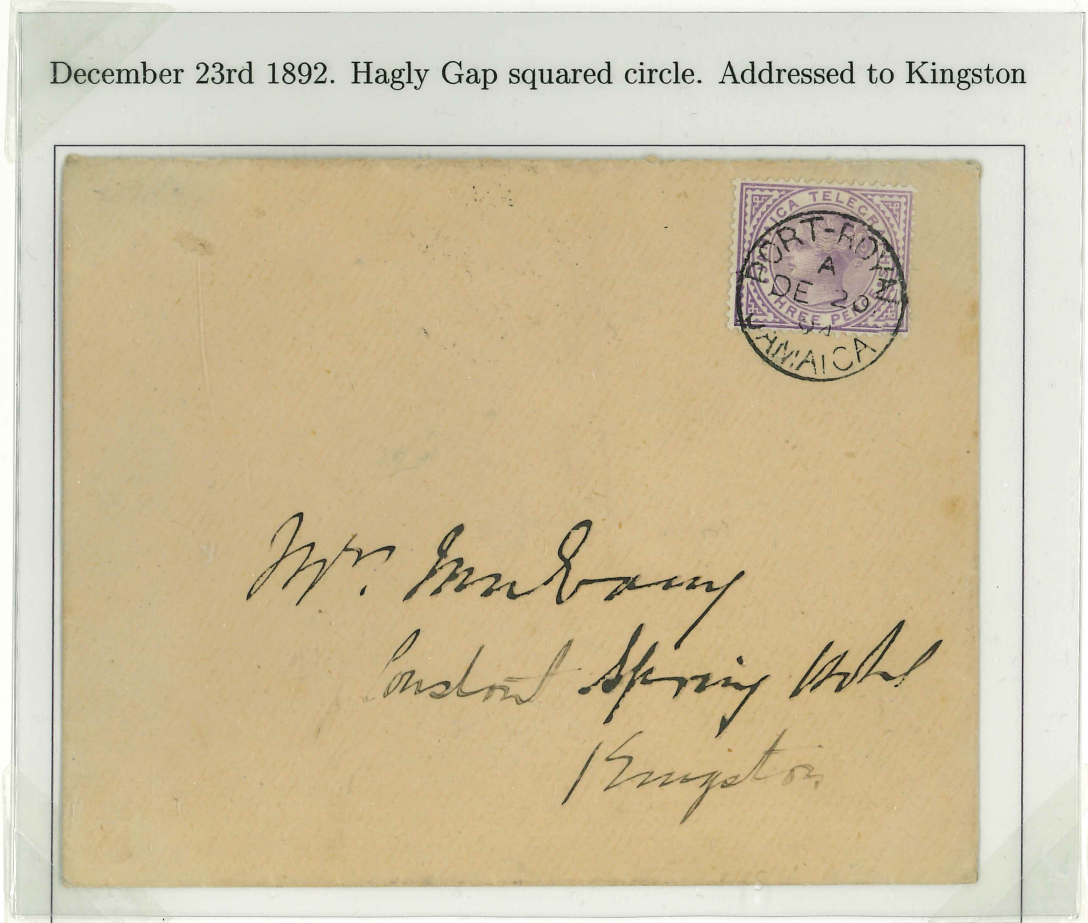 December 23rd 1892. Hagly Gap squared circle. Addressed to Kingston
ICA TELEGR
THREE PE
PORT-ROYAL
A
DE 20
94
JAMAICA
Mrs.
Constant Spring Hotel
Kingston